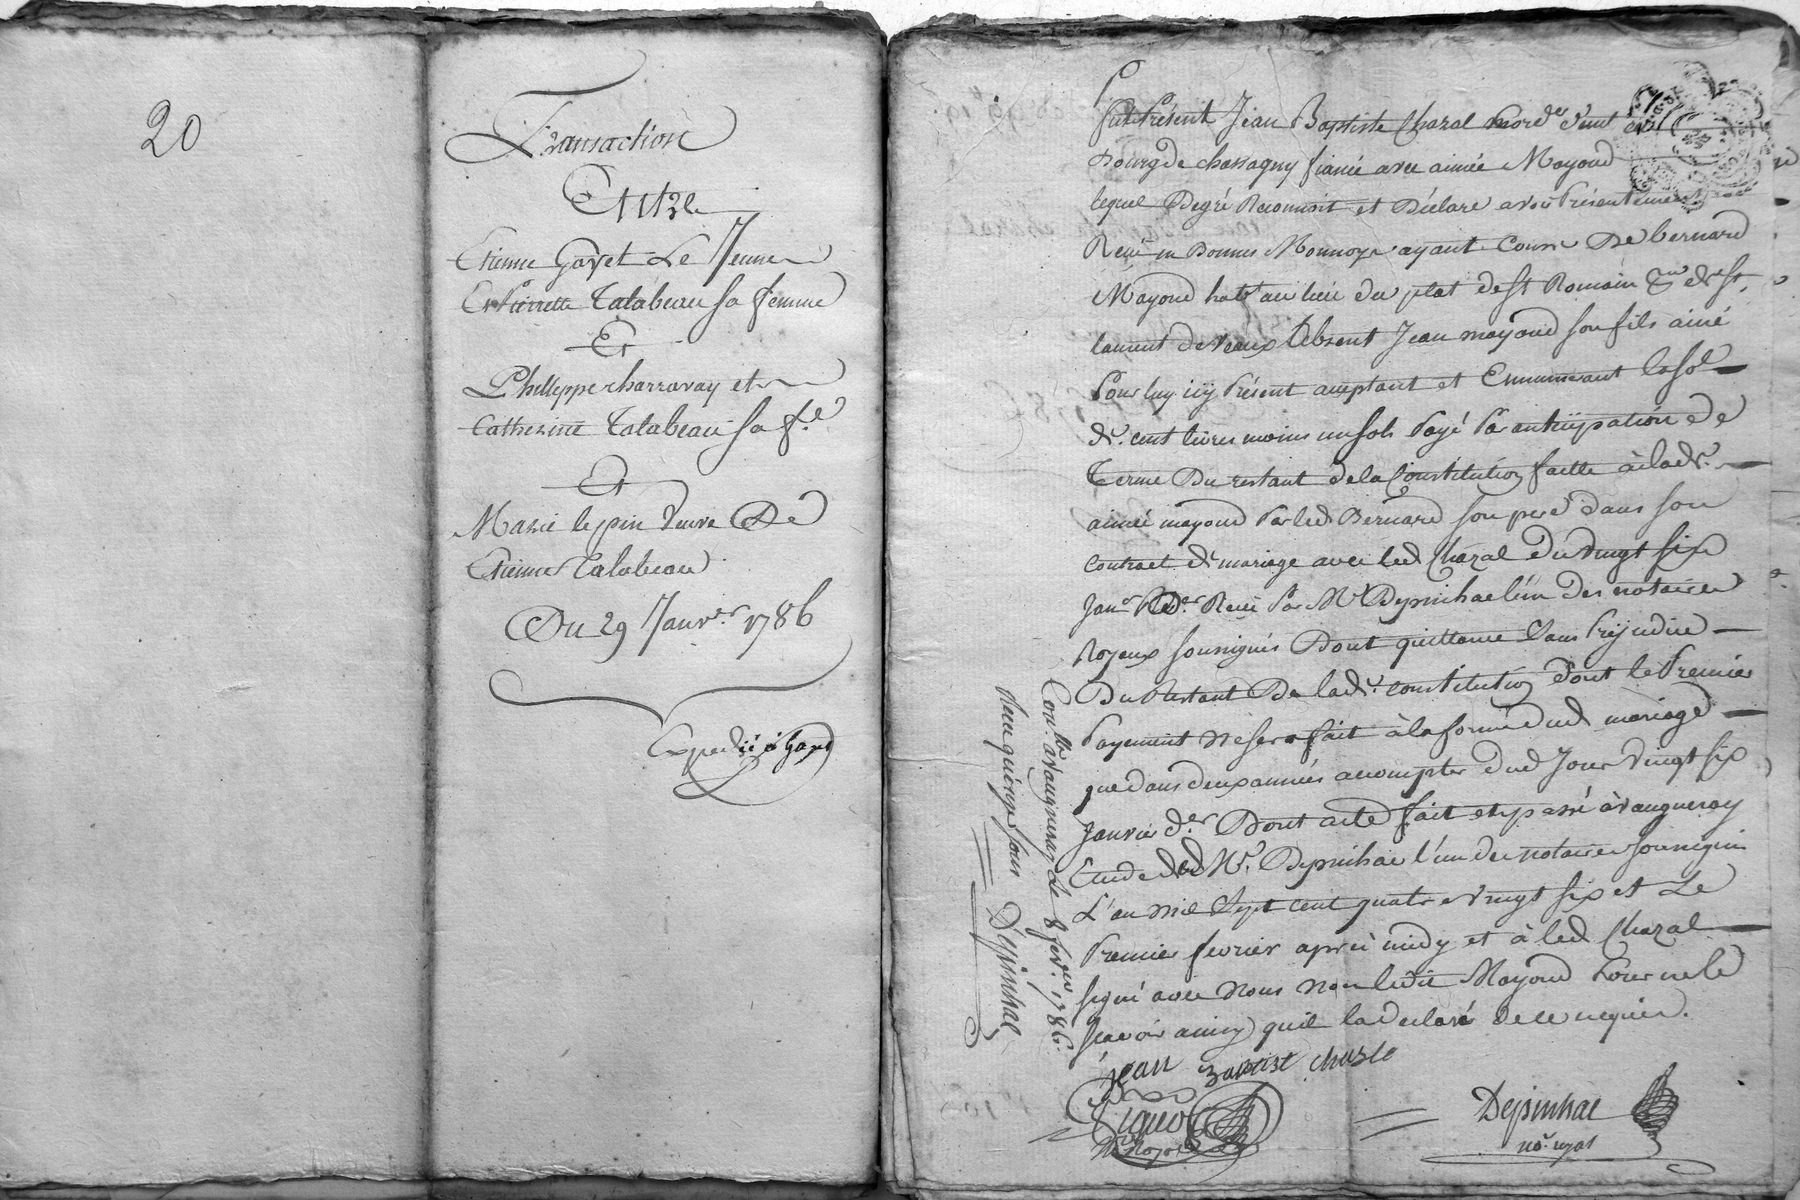 20
Transaction
Entre
Etienne Gayet Le Jeune
Et Pierrette Talabeau sa femme
Et
Phillyppe charravay et
Catherine Talabeau sa fe
Et
Marie lepin veuve De
Etienne Talabeau
Du 29 Janvr. 1786
Expedié à Gayet
Fut Présent Jean Baptiste Chazal
Bourg de chassagny fiancé avec aimée Mayoud
lequel Degré Reconnoit et Déclare avoir Présentement
Reçu en Bonnes Monnoye ayant Cours De bernard
Mayoud habt au lieu du plat de St Romain de St
laurent de Vaux absent Jean mayoud son fils ainé
Pour luy icy Présent acceptant et Ennumerant la se
de cent livres moins un sols Payé Par anticipation de
Terme Du restant de la Constitution faitte à lade.
aimée mayoud Par led Bernard son pere dans son
contract de mariage avec led Chazal Du vingt six
Janer Der. Reçu Par Me Depinhac l'un des notaires
Royeaux sousignés Dont quittance Sans Préjudice
Du Restant De lade. constitution dont le Premier
Payement ne sera fait à la forme dud mariage
que dans deux années acompter dud Jour vingt six
Janvier der. Dont acte fait et passé à vaugneray
Etude dud Me. Depinhac l'un des notaires sousignés
L'an mil Sept cent quatre vingt six et Le
Premier fevrier après midy et à led Chazal
signé avec nous non ledit Mayoud Pour ne le
scavoir ainsy quil la declaré de ce requis.
Conlle. à vaugneray Le 8 fevrier. 1786.
Reçu quinze sous Depinhac
jean Batist chazle
Depinhac
nore. royal